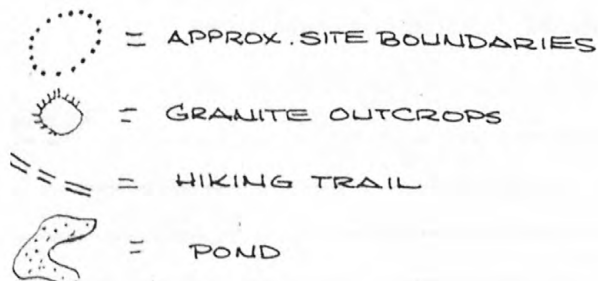 = APPROX. SITE BOUNDARIES
= GRANITE OUTCROPS
= HIKING TRAIL
= POND